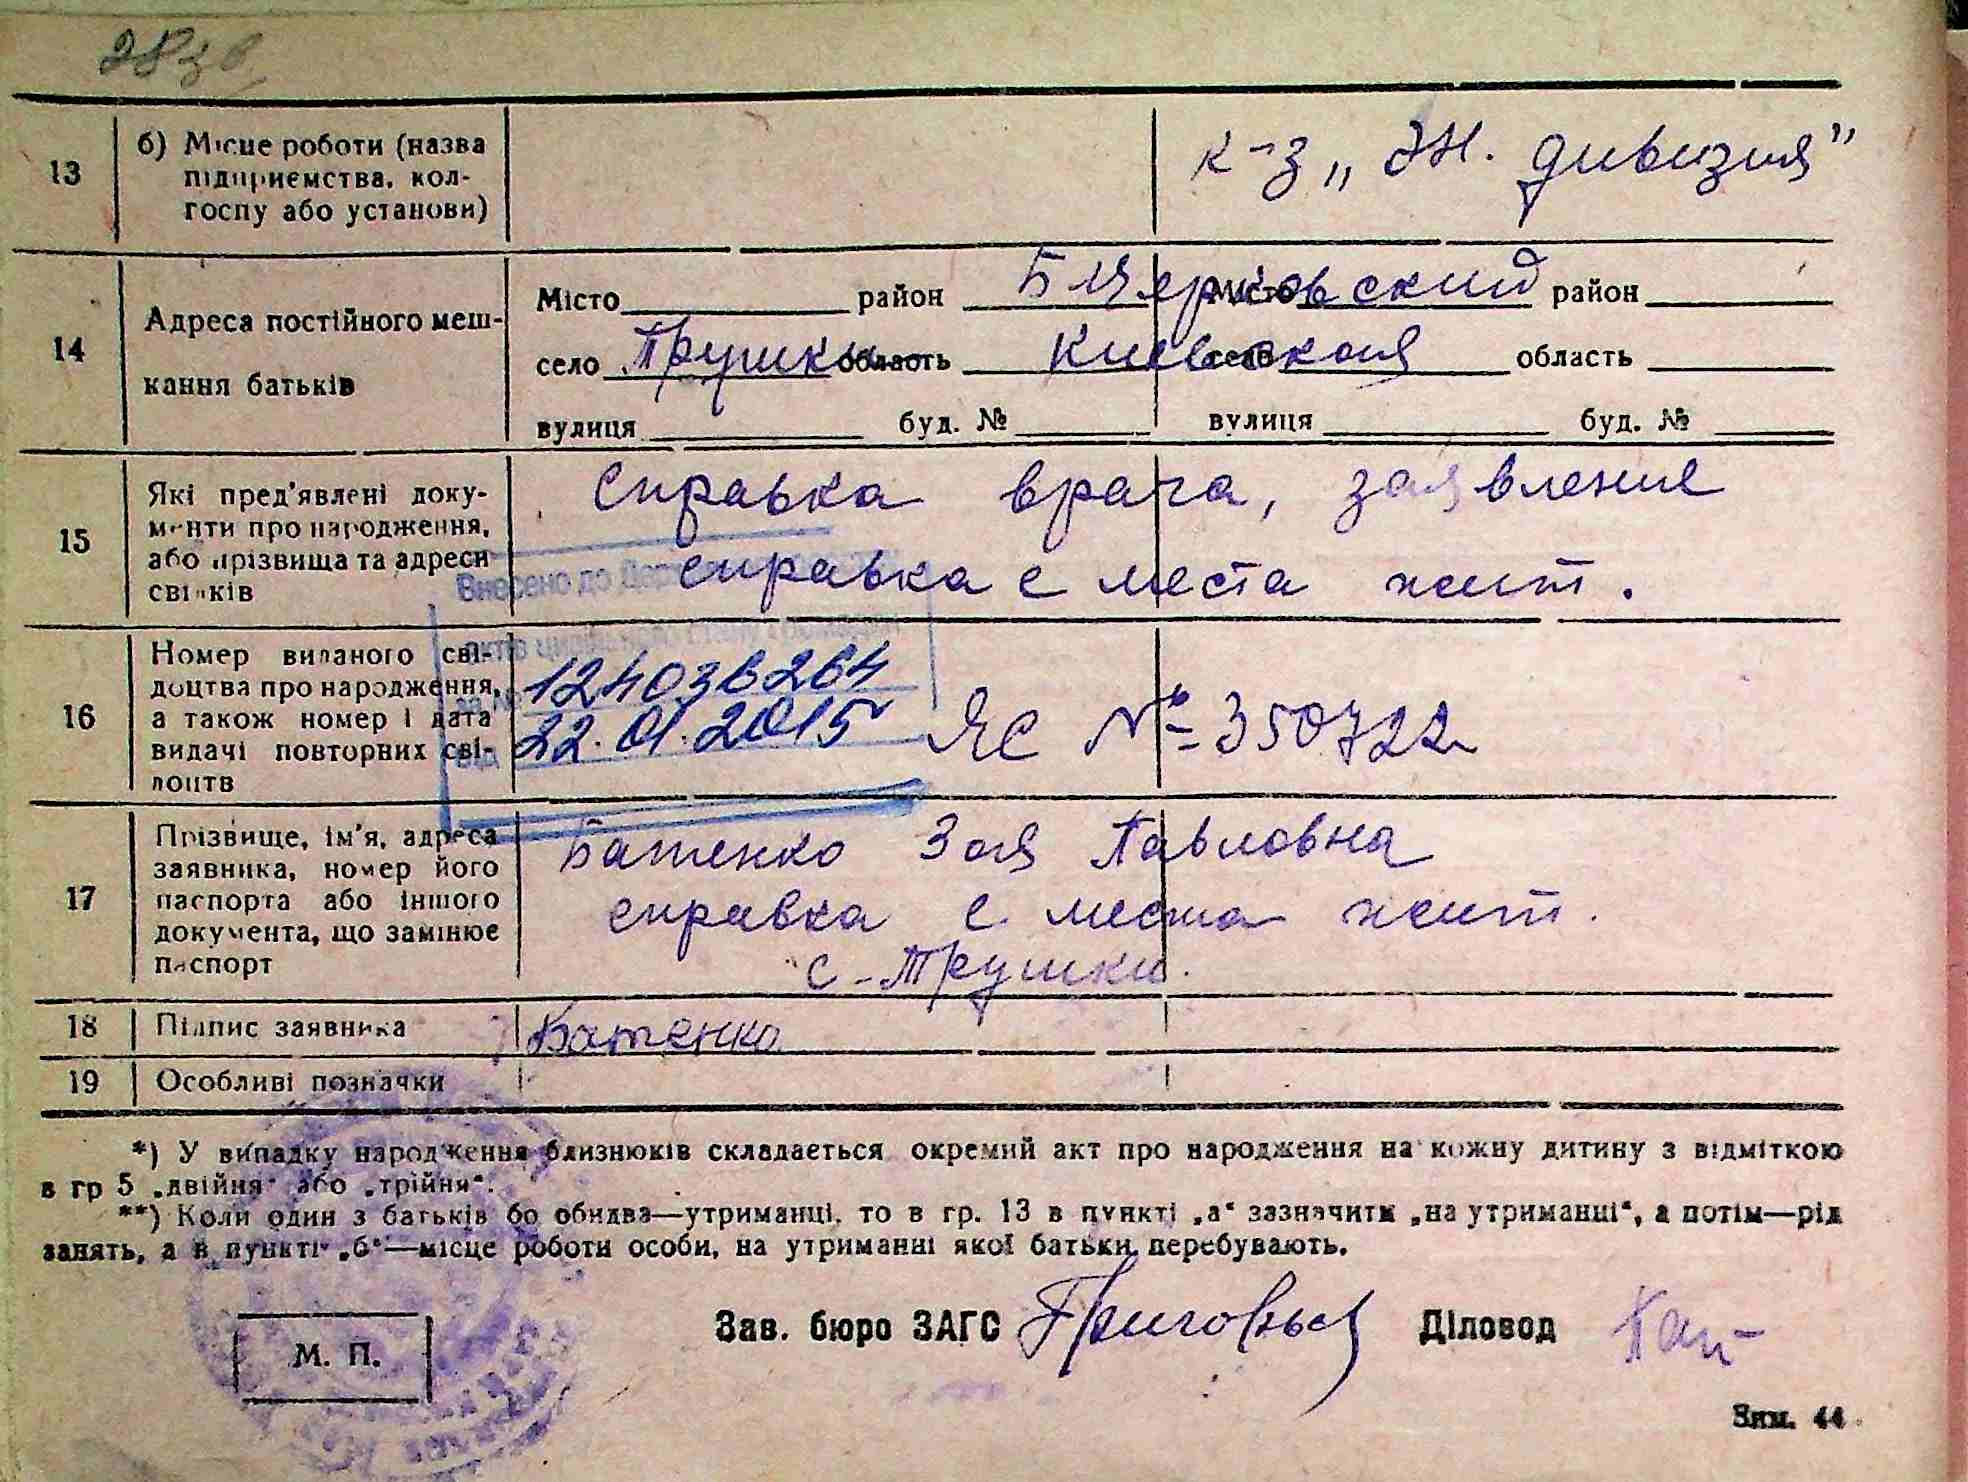 13 б) Місце роботи (назва підприємства, колгоспу або установи) к-з „ЭН. дивизия"
14 Адреса постійного мешкання батьків
Місто район Б Церковский Місто район
село Трушки область Киевская село область
вулиця буд. № вулиця буд. №
15 Які пред'явлені документи про народження, або прізвища та адреси свідків
Справка врача, заявление
справка с места жит.
Внесено до
актів цивільного стану громадян
за № 124036264
від 22.01.2015
16 Номер виданого свідоцтва про народження, а також номер і дата видачі повторних свідоцтв ЯС № 350722
17 Прізвище, ім'я, адреса заявника, номер його паспорта або іншого документа, що замінює паспорт
Батенко Зоя Павловна
справка с места жит.
с-Трушки.
18 Підпис заявника Батенко
19 Особливі позначки
*) У випадку народження близнюків складається окремий акт про народження на кожну дитину з відміткою
в гр 5 „двійня" або „трійня".
**) Коли один з батьків бо обидва—утриманці, то в гр. 13 в пункті „а" зазначити „на утриманні", а потім—рід
занять, а в пункті „б"—місце роботи особи, на утриманні якої батьки перебувають.
Зав. бюро ЗАГС Діловод
М. П.
Зим. 44